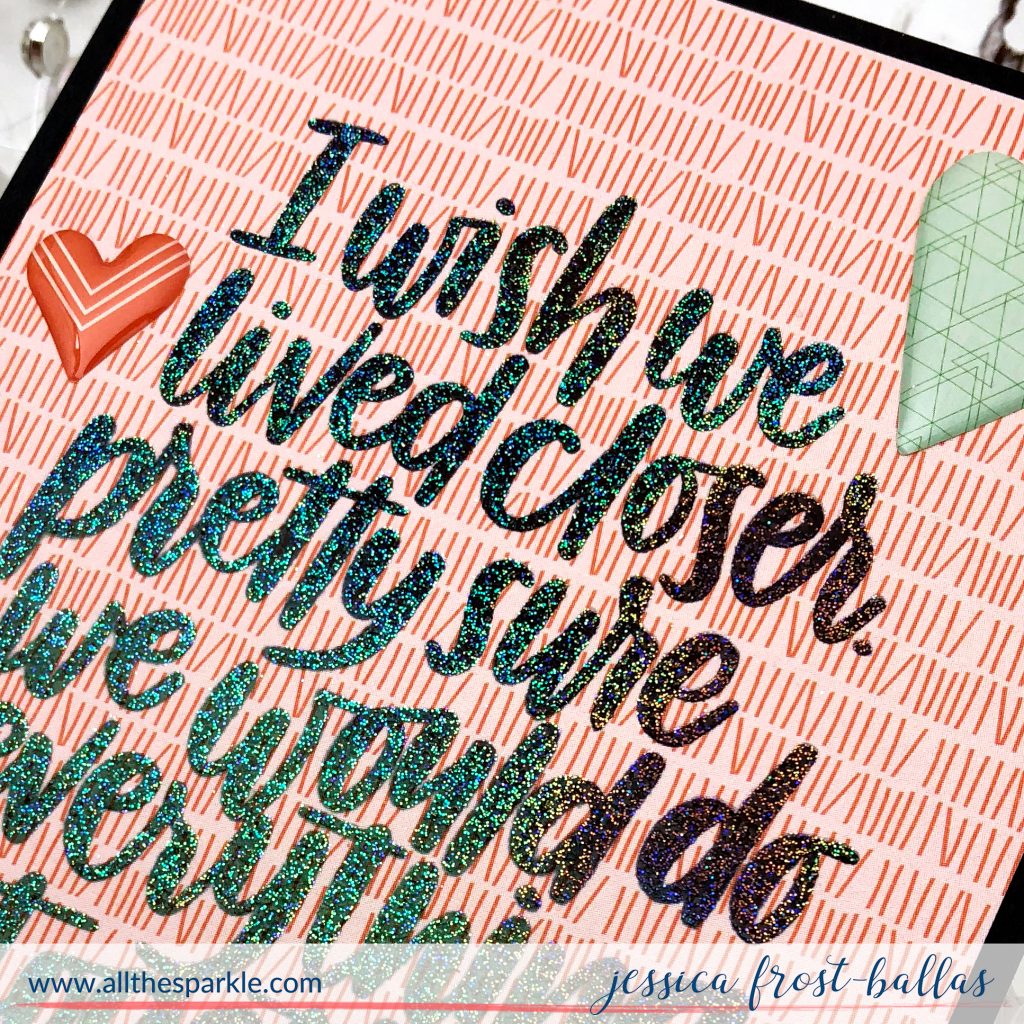 I wish we
lived closer.
pretty sure
we would do
www.allthesparkle.com
jessica frost-ballas